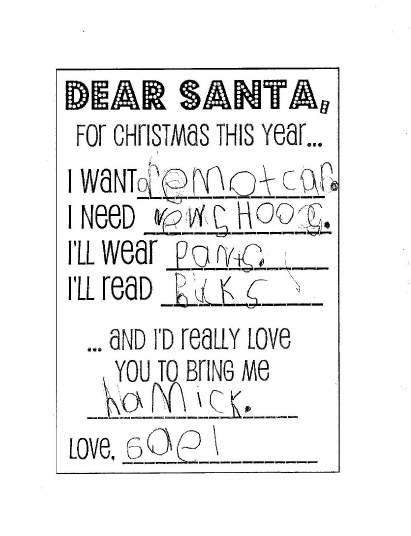 DEAR SANTA,
FOR CHRISTMAS THIS YEAR...
I WANT a remotcar.
I NEED new SHOOS.
I'LL WEAR pants.
I'LL READ BuKS
... AND I'D REALLY LOVE
YOU TO BRING ME
haMicK.
LOVE, Gael